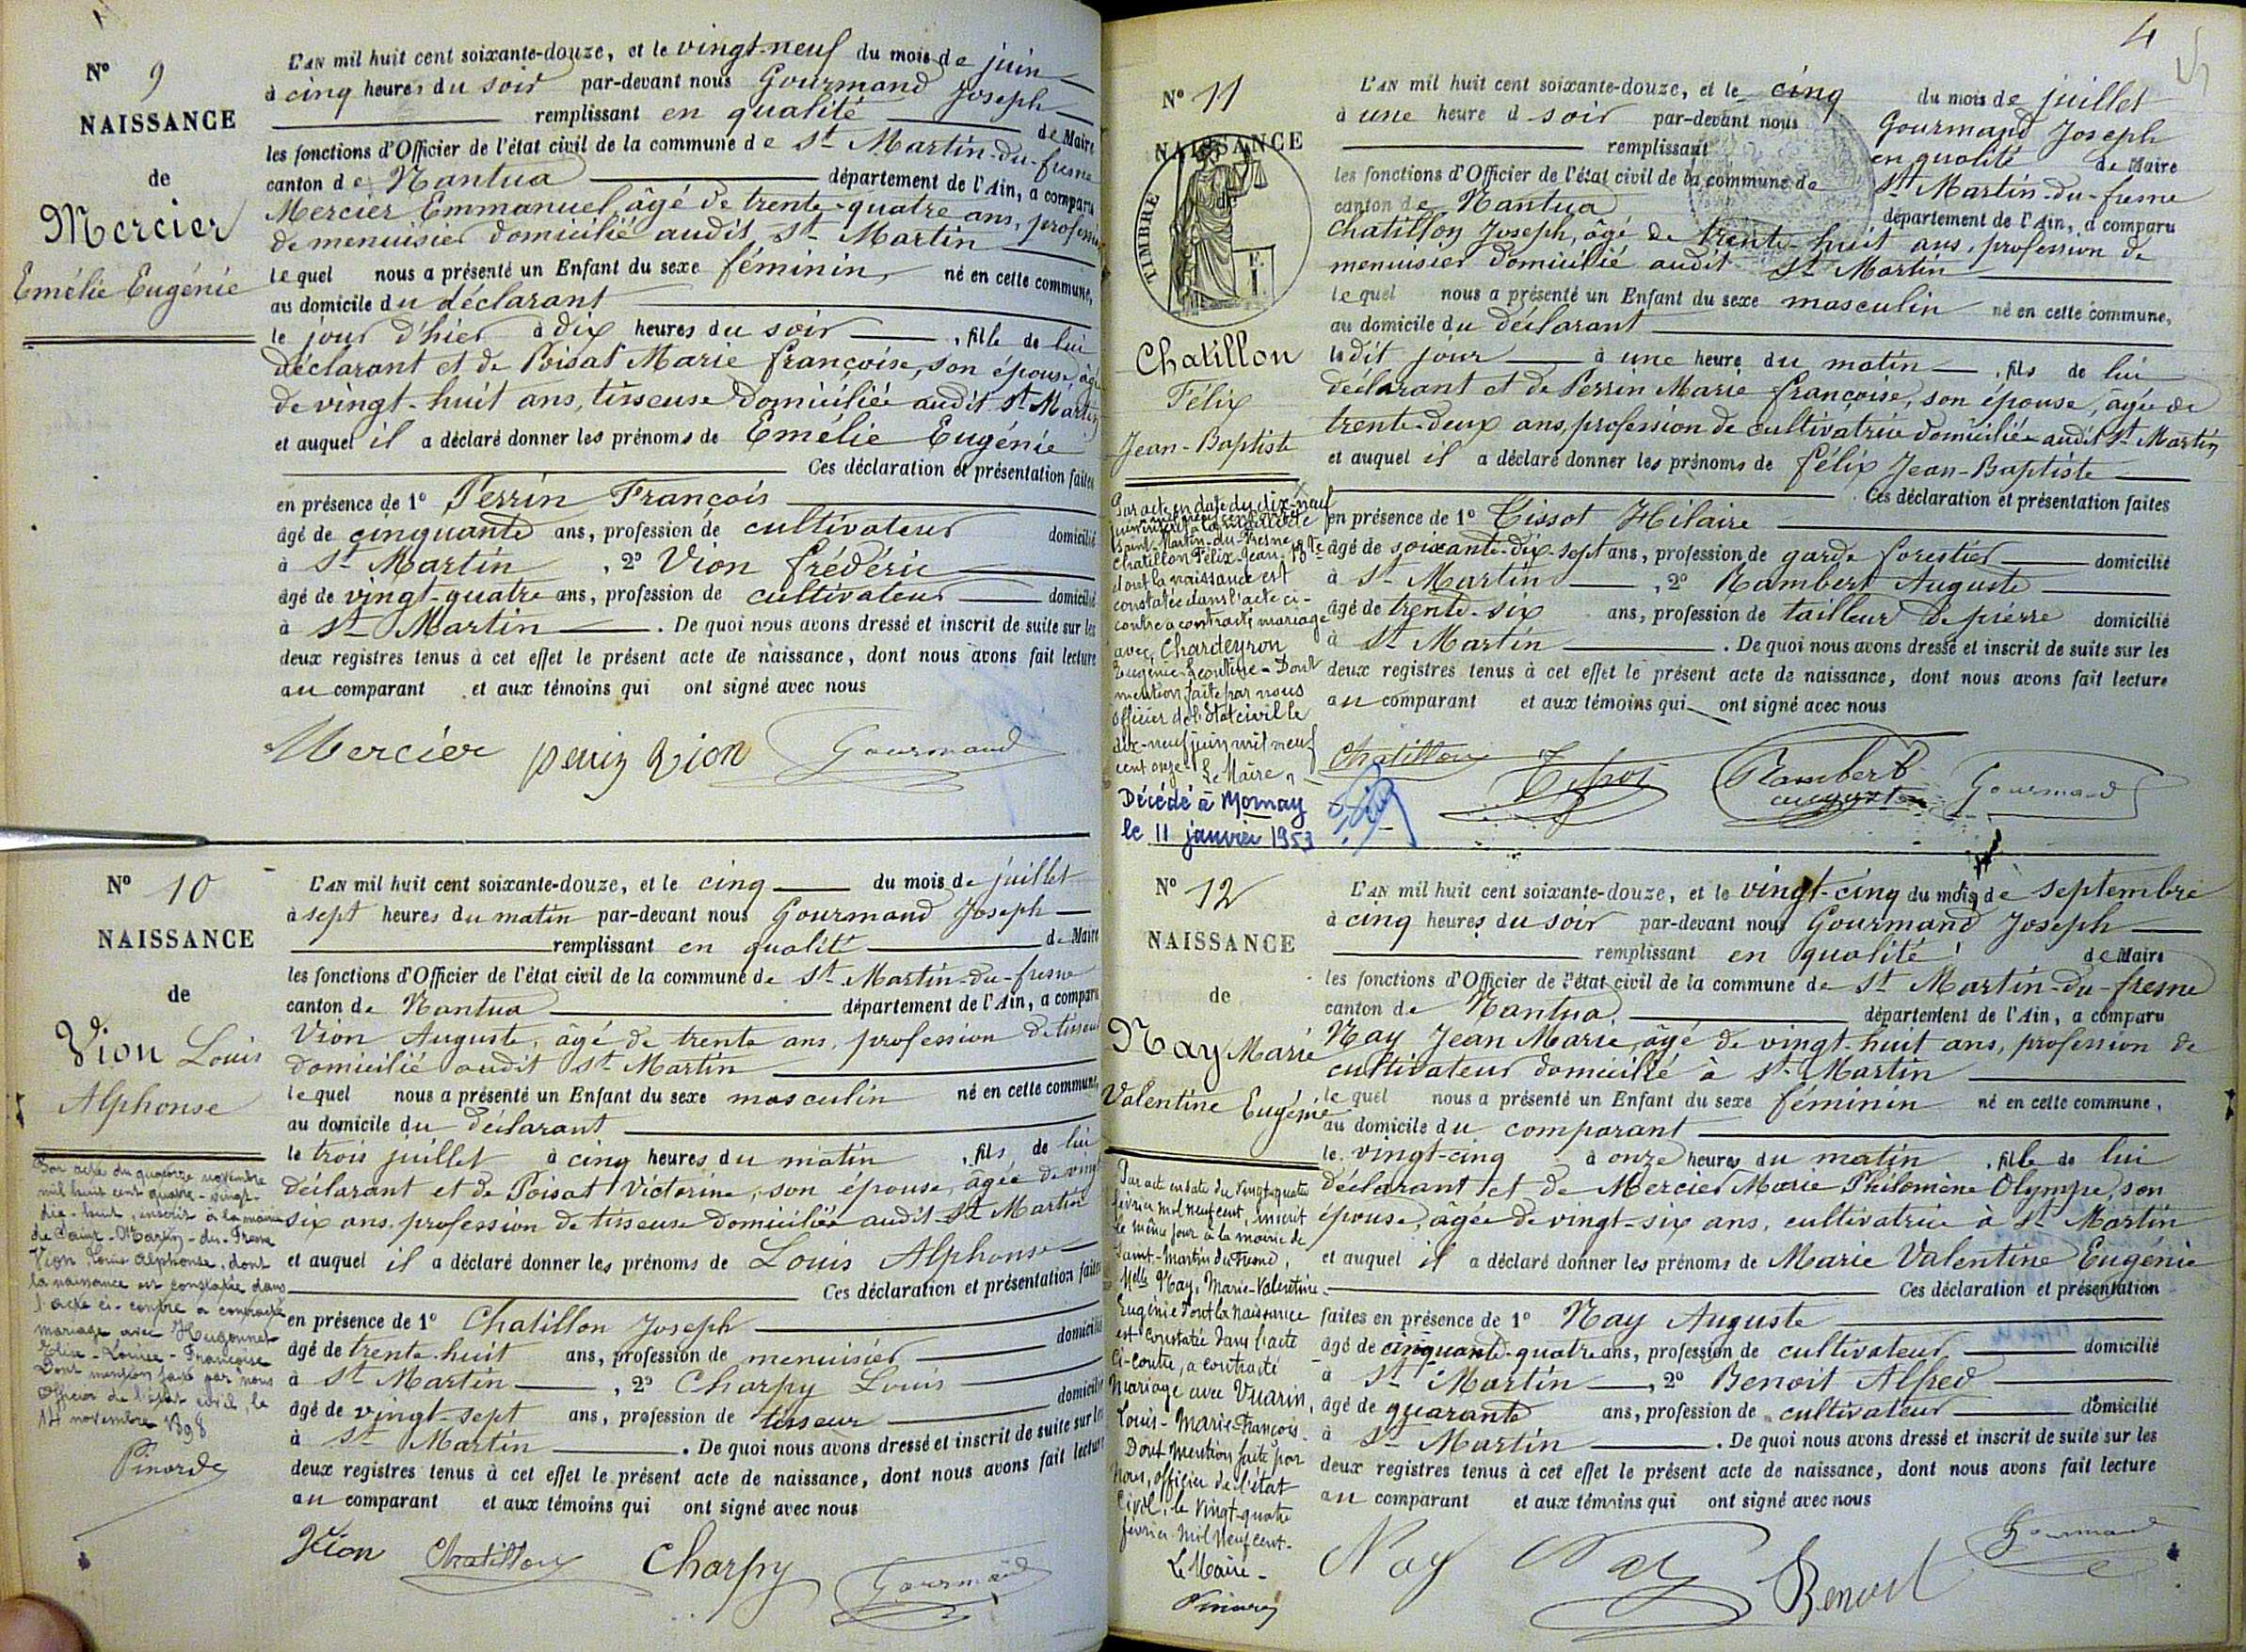 Nº 9
NAISSANCE
de
Mercier
Emélie Eugénie
L'AN mil huit cent soixante-douze, et le vingt-neuf du mois de juin
à cinq heures du soir par-devant nous Gourmand Joseph
remplissant en qualité de Maire
les fonctions d'Officier de l'état civil de la commune de St Martin-du-fresne
canton de Nantua département de l'Ain, a comparu
Mercier Emmanuel âgé de trente-quatre ans, profession
de menuisier domicilié audit St Martin
lequel nous a présenté un Enfant du sexe féminin, né en cette commune,
au domicile du déclarant
le jour d'hier à dix heures du soir, fille de lui
déclarant et de Poisat Marie françoise, son épouse, âgée
de vingt-huit ans, tisseuse domiciliée audit St Martin
et auquel il a déclaré donner les prénoms de Emélie Eugénie
Ces déclaration et présentation faites
en présence de 1º Perrin François
âgé de cinquante ans, profession de cultivateur domicilié
à St Martin, 2º Vion frédéric
âgé de vingt-quatre ans, profession de cultivateur domicilié
à St Martin. De quoi nous avons dressé et inscrit de suite sur les
deux registres tenus à cet effet le présent acte de naissance, dont nous avons fait lecture
au comparant et aux témoins qui ont signé avec nous
Mercier perrin Vion Gourmand
Nº 10
NAISSANCE
de
Vion Louis
Alphonse
Par acte du quatorze novembre
mil huit cent quatre-vingt-
dix-huit, inscrit à la mairie
de Saint-Martin-du-Fresne
Vion, Louis Alphonse, dont
la naissance est constatée dans
l'acte ci-contre a contracté
mariage avec Hugonnet
Elise-Louise-Françoise
Dont mention faite par nous
Officier de l'état civil, le
14 novembre 1898
L'AN mil huit cent soixante-douze, et le cinq du mois de juillet
à sept heures du matin par-devant nous Gourmand Joseph
remplissant en qualité de Maire
les fonctions d'Officier de l'état civil de la commune de St Martin-du-fresne
canton de Nantua département de l'Ain, a comparu
Vion Auguste, âgé de trente ans, profession de tisseur
domicilié audit St Martin
lequel nous a présenté un Enfant du sexe masculin né en cette commune,
au domicile du déclarant
le trois juillet à cinq heures du matin, fils de lui
déclarant et de Poisat Victorine, son épouse, âgée de vingt
six ans, profession de tisseuse domiciliée audit St Martin
et auquel il a déclaré donner les prénoms de Louis Alphonse
Ces déclaration et présentation faites
en présence de 1º Chatillon Joseph
âgé de trente-huit ans, profession de menuisier domicilié
à St Martin, 2º Charpy Louis
âgé de vingt-sept ans, profession de tisseur domicilié
à St Martin. De quoi nous avons dressé et inscrit de suite sur les
deux registres tenus à cet effet le présent acte de naissance, dont nous avons fait lecture
au comparant et aux témoins qui ont signé avec nous
Vion Chatillon Charpy Gourmand
4
Nº 11
NAISSANCE
de
TIMBRE
Chatillon
Félix
Jean-Baptiste
Par acte en date du dix-neuf
juin mil neuf cent onze
inscrit à la mairie de
Saint-Martin-du-Fresne
Chatillon Félix-Jean-Bte
dont la naissance est
constatée dans l'acte ci-
contre a contracté mariage
avec Chardeyron
Eugénie-Léontine-Dont
mention faite par nous
Officier de l'état civil le
dix-neuf juin mil neuf
cent onze. Le Maire,
Décédé à Mornay
le 11 janvier 1953
L'AN mil huit cent soixante-douze, et le cinq du mois de juillet
à une heure d soir par-devant nous Gourmand Joseph
remplissant en qualité de Maire
les fonctions d'Officier de l'état civil de la commune de St Martin-du-fresne
canton de Nantua département de l'Ain, a comparu
Chatillon Joseph, âgé de trente-huit ans, profession de
menuisier domicilié audit St Martin
lequel nous a présenté un Enfant du sexe masculin né en cette commune,
au domicile du déclarant
ledit jour à une heure du matin, fils de lui
déclarant et de Perrin Marie françoise, son épouse, agée de
trente-deux ans, profession de cultivatrice domiciliée audit St Martin
et auquel il a déclaré donner les prénoms de félix Jean-Baptiste
Ces déclaration et présentation faites
en présence de 1º Tissot Hilaire
âgé de soixante-dix-sept ans, profession de garde forestier domicilié
à St Martin, 2º Rambert Auguste
âgé de trente-six ans, profession de tailleur de pierre domicilié
à St Martin. De quoi nous avons dressé et inscrit de suite sur les
deux registres tenus à cet effet le présent acte de naissance, dont nous avons fait lecture
au comparant et aux témoins qui ont signé avec nous
Chatillon Tissot Rambert auguste Gourmand
Nº 12
NAISSANCE
de
Nay Marie
Valentine Eugénie
Par acte en date du vingt-quatre
février mil neuf cent, inscrit
le même jour à la mairie de
Saint-Martin du Fresne,
Melle Nay, Marie-Valentine-
Eugénie dont la naissance
est constatée dans l'acte
ci-contre, a contracté
mariage avec Vuarin,
Louis-Marie-François.
Dont mention faite par
Nous, officier de l'état
Civil, le vingt-quatre
février mil neuf cent.
Le Maire
L'AN mil huit cent soixante-douze, et le vingt-cinq du mois de septembre
à cinq heures du soir par-devant nous Gourmand Joseph
remplissant en qualité de Maire
les fonctions d'Officier de l'état civil de la commune de St Martin-du-fresne
canton de Nantua département de l'Ain, a comparu
Nay Jean Marie, âgé de vingt-huit ans, profession de
cultivateur domicilié à St Martin
lequel nous a présenté un Enfant du sexe féminin né en cette commune,
au domicile du comparant
le vingt-cinq à onze heures du matin, fille de lui
déclarant et de Mercier Marie Philomène Olympe, son
épouse, âgée de vingt-six ans, cultivatrice à St Martin
et auquel il a déclaré donner les prénoms de Marie Valentine Eugénie
Ces déclaration et présentation
faites en présence de 1º Nay Auguste
âgé de cinquante-quatre ans, profession de cultivateur domicilié
à St Martin, 2º Benoit Alfred
âgé de quarante ans, profession de cultivateur domicilié
à St Martin. De quoi nous avons dressé et inscrit de suite sur les
deux registres tenus à cet effet le présent acte de naissance, dont nous avons fait lecture
au comparant et aux témoins qui ont signé avec nous
Nay Nay Benoit Gourmand